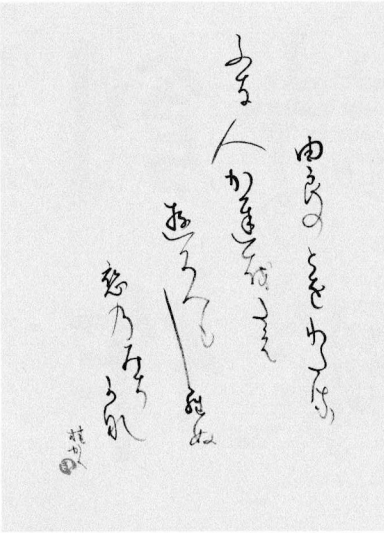 由良のとをわたる
ふな人かぢをたえ
ゆくへもしらぬ
恋のみちかな